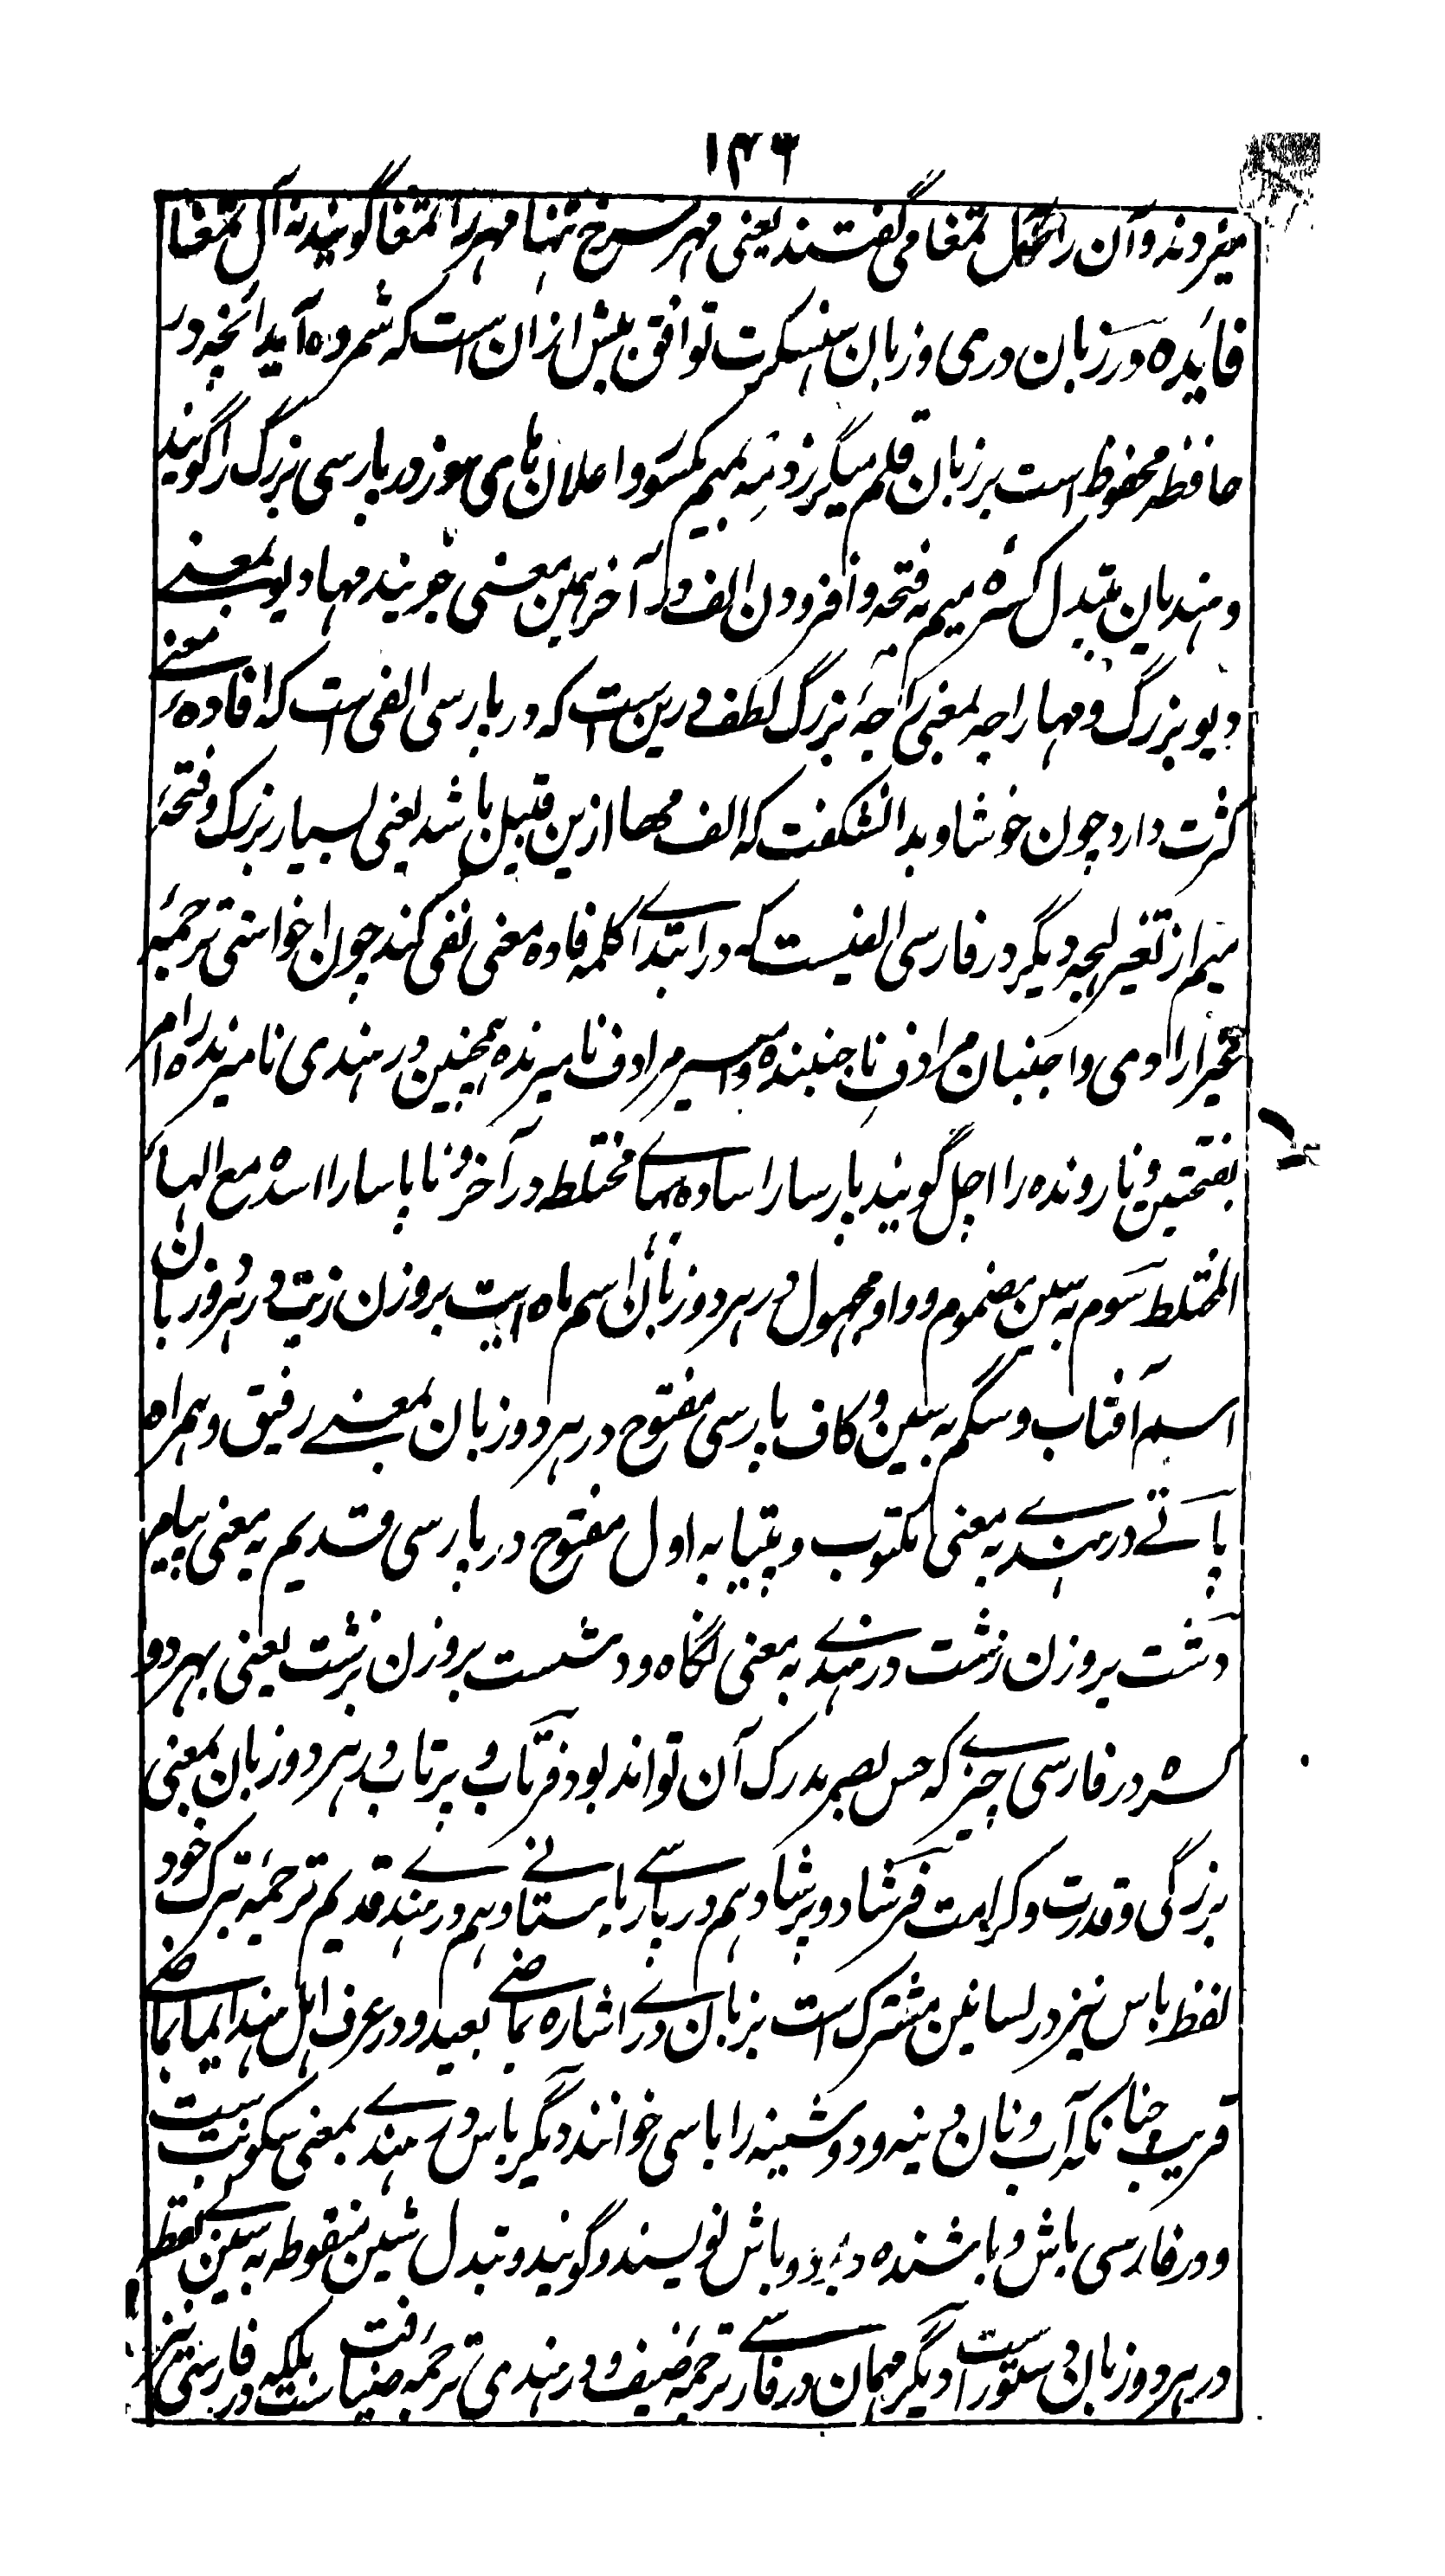 ۱۴۶
میزدند و آن را آل تمغا می گفتند یعنی مهر سرخ تنها مهر را تمغا گویند نه آل تمغا
فایده در زبان دری و زبان سنسکرت توافق بیش ازان است که شمرده آید انچه در
حافظه محفوظ است بر زبان قلم میگزرد مِه بمیم مکسور و اعلان های هوز در پارسی بزرگ را گویند
و هندیان بتبدل کسره میم به فتحه و افزودن الف در آخر همین معنی جویند مهادیو بمعنے
دیو بزرگ و مهاراجه بمعنی راجهٔ بزرگ لطف درین ست که در پارسی الفی است که افادهٔ معنے
کثرت دارد چون خوشا و بدا نشگفت که الف مها ازین قبیل باشد یعنی بسیار بزرگ و فتحهٔ
میم از تغیر لهجه دیگر در فارسی الفیست که در ابتداے کلمه فاده معنی نفی کند چون اخواستی ترجمهٔ
غیر ارادی و اجنبان مرادف نا جنبنده و امیر مرادف نامیرنده همچنین در هندی نامیرنده را امر
بفتحتین و نا رونده را اچل گویند پارسا را ساده بهاے مختلطه در آخر و نا پاسا را اسده مع الهاء
المختلط سوم به سین مضموم و واو مجهول در هر دو زبان اسم ماه است بروزن زیت در هر دو زبان
اسم آفتاب و سگم به سین و کاف پارسی مفتوح در هر دو زبان بمعنے رفیق و همراه
پاتے در هندے به معنی مکتوب و پتیا به اول مفتوح در پارسی قدیم به معنی پیام
دشت بروزن زشت در هندے به معنی نگاه و دشست بروزن برشت یعنی بهر دو
کسره در فارسی چیزے که حس بصر مدرک آن تواند بود فرتاب و پرتاب در هر دو زبان بمعنی
بزرگی و قدرت و کرامت فرشاد و پرشاد هم در پارسے باستانے و هم در هندے قدیم ترجمهٔ تبرک خود
لفظ باس نیز در لسانین مشترک است بزبان درے اشاره بماضے بعید و در عرف اهل هند ایما بماضے
قریب چنانکه آب و نان دینه و دوشینه را باسی خوانند دیگر باس در هندے بمعنی سکونت ست
و در فارسی باش و باشنده و بود و باش نویسند و گویند و تبدل شین منقوطه به سین بے نقطه
در هر دو زبان دستور است دیگر مهمان در فارسے ترجمهٔ ضیف و در هندی ترجمهٔ ضیافت ست بلکه در فارسی نیز